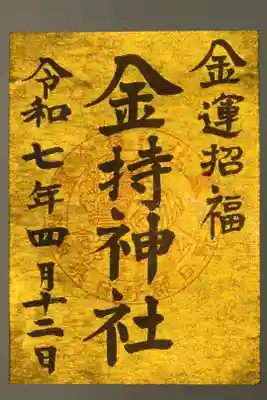 金運招福
金持神社
令和七年四月十二日